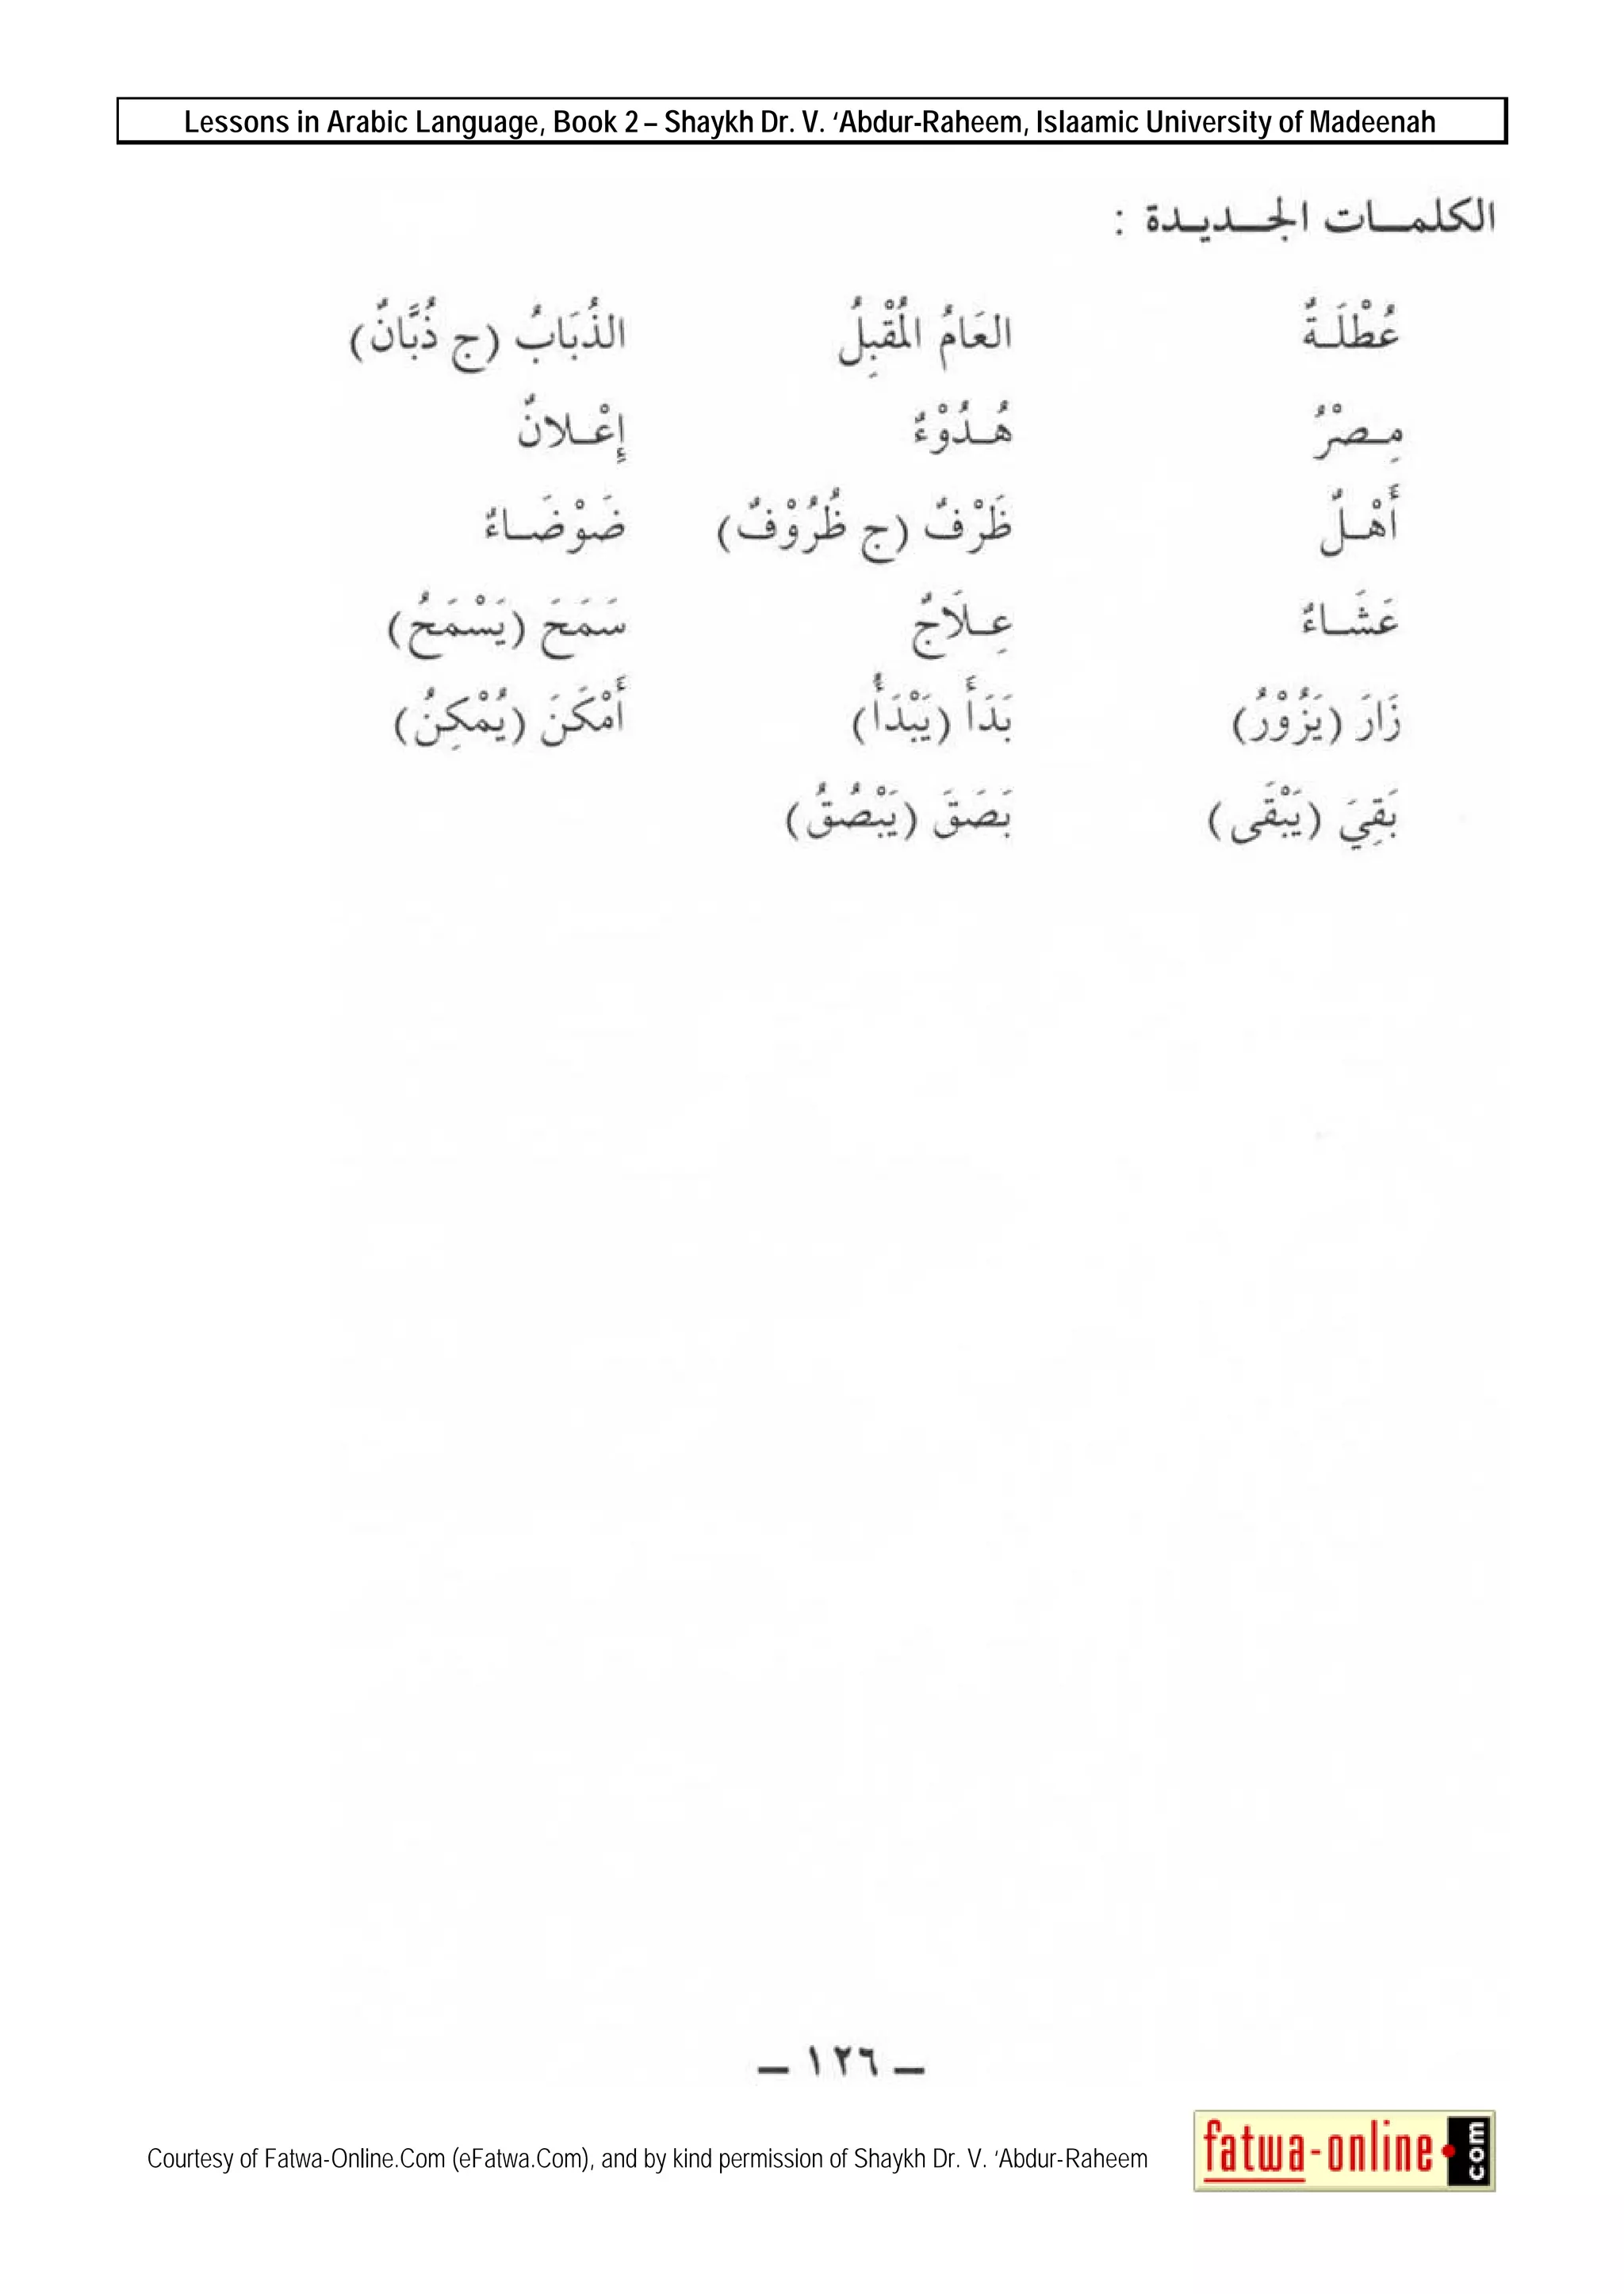 Lessons in Arabic Language, Book 2 – Shaykh Dr. V. ‘Abdur-Raheem, Islaamic University of Madeenah
الكلمـــات الجـــديـدة :
عُطْلَـةٌ العَامُ المُقْبِلُ الذُبَابُ (ج ذُبَّانٌ)
مِـصْرُ هُـدُوْءٌ إِعْـلانٌ
أَهْـلٌ ظَرْفٌ (ج ظُرُوْفٌ) ضَوْضَـاءٌ
عَشَـاءٌ عِـلَاجٌ سَمَحَ (يَسْمَحُ)
زَارَ (يَزُوْرُ) بَدَأَ (يَبْدَأُ) أَمْكَنَ (يُمْكِنُ)
بَقِيَ (يَبْقَى) بَصَقَ (يَبْصُقُ)
– ١٢٦ –
Courtesy of Fatwa-Online.Com (eFatwa.Com), and by kind permission of Shaykh Dr. V. ‘Abdur-Raheem
fatwa-online•com